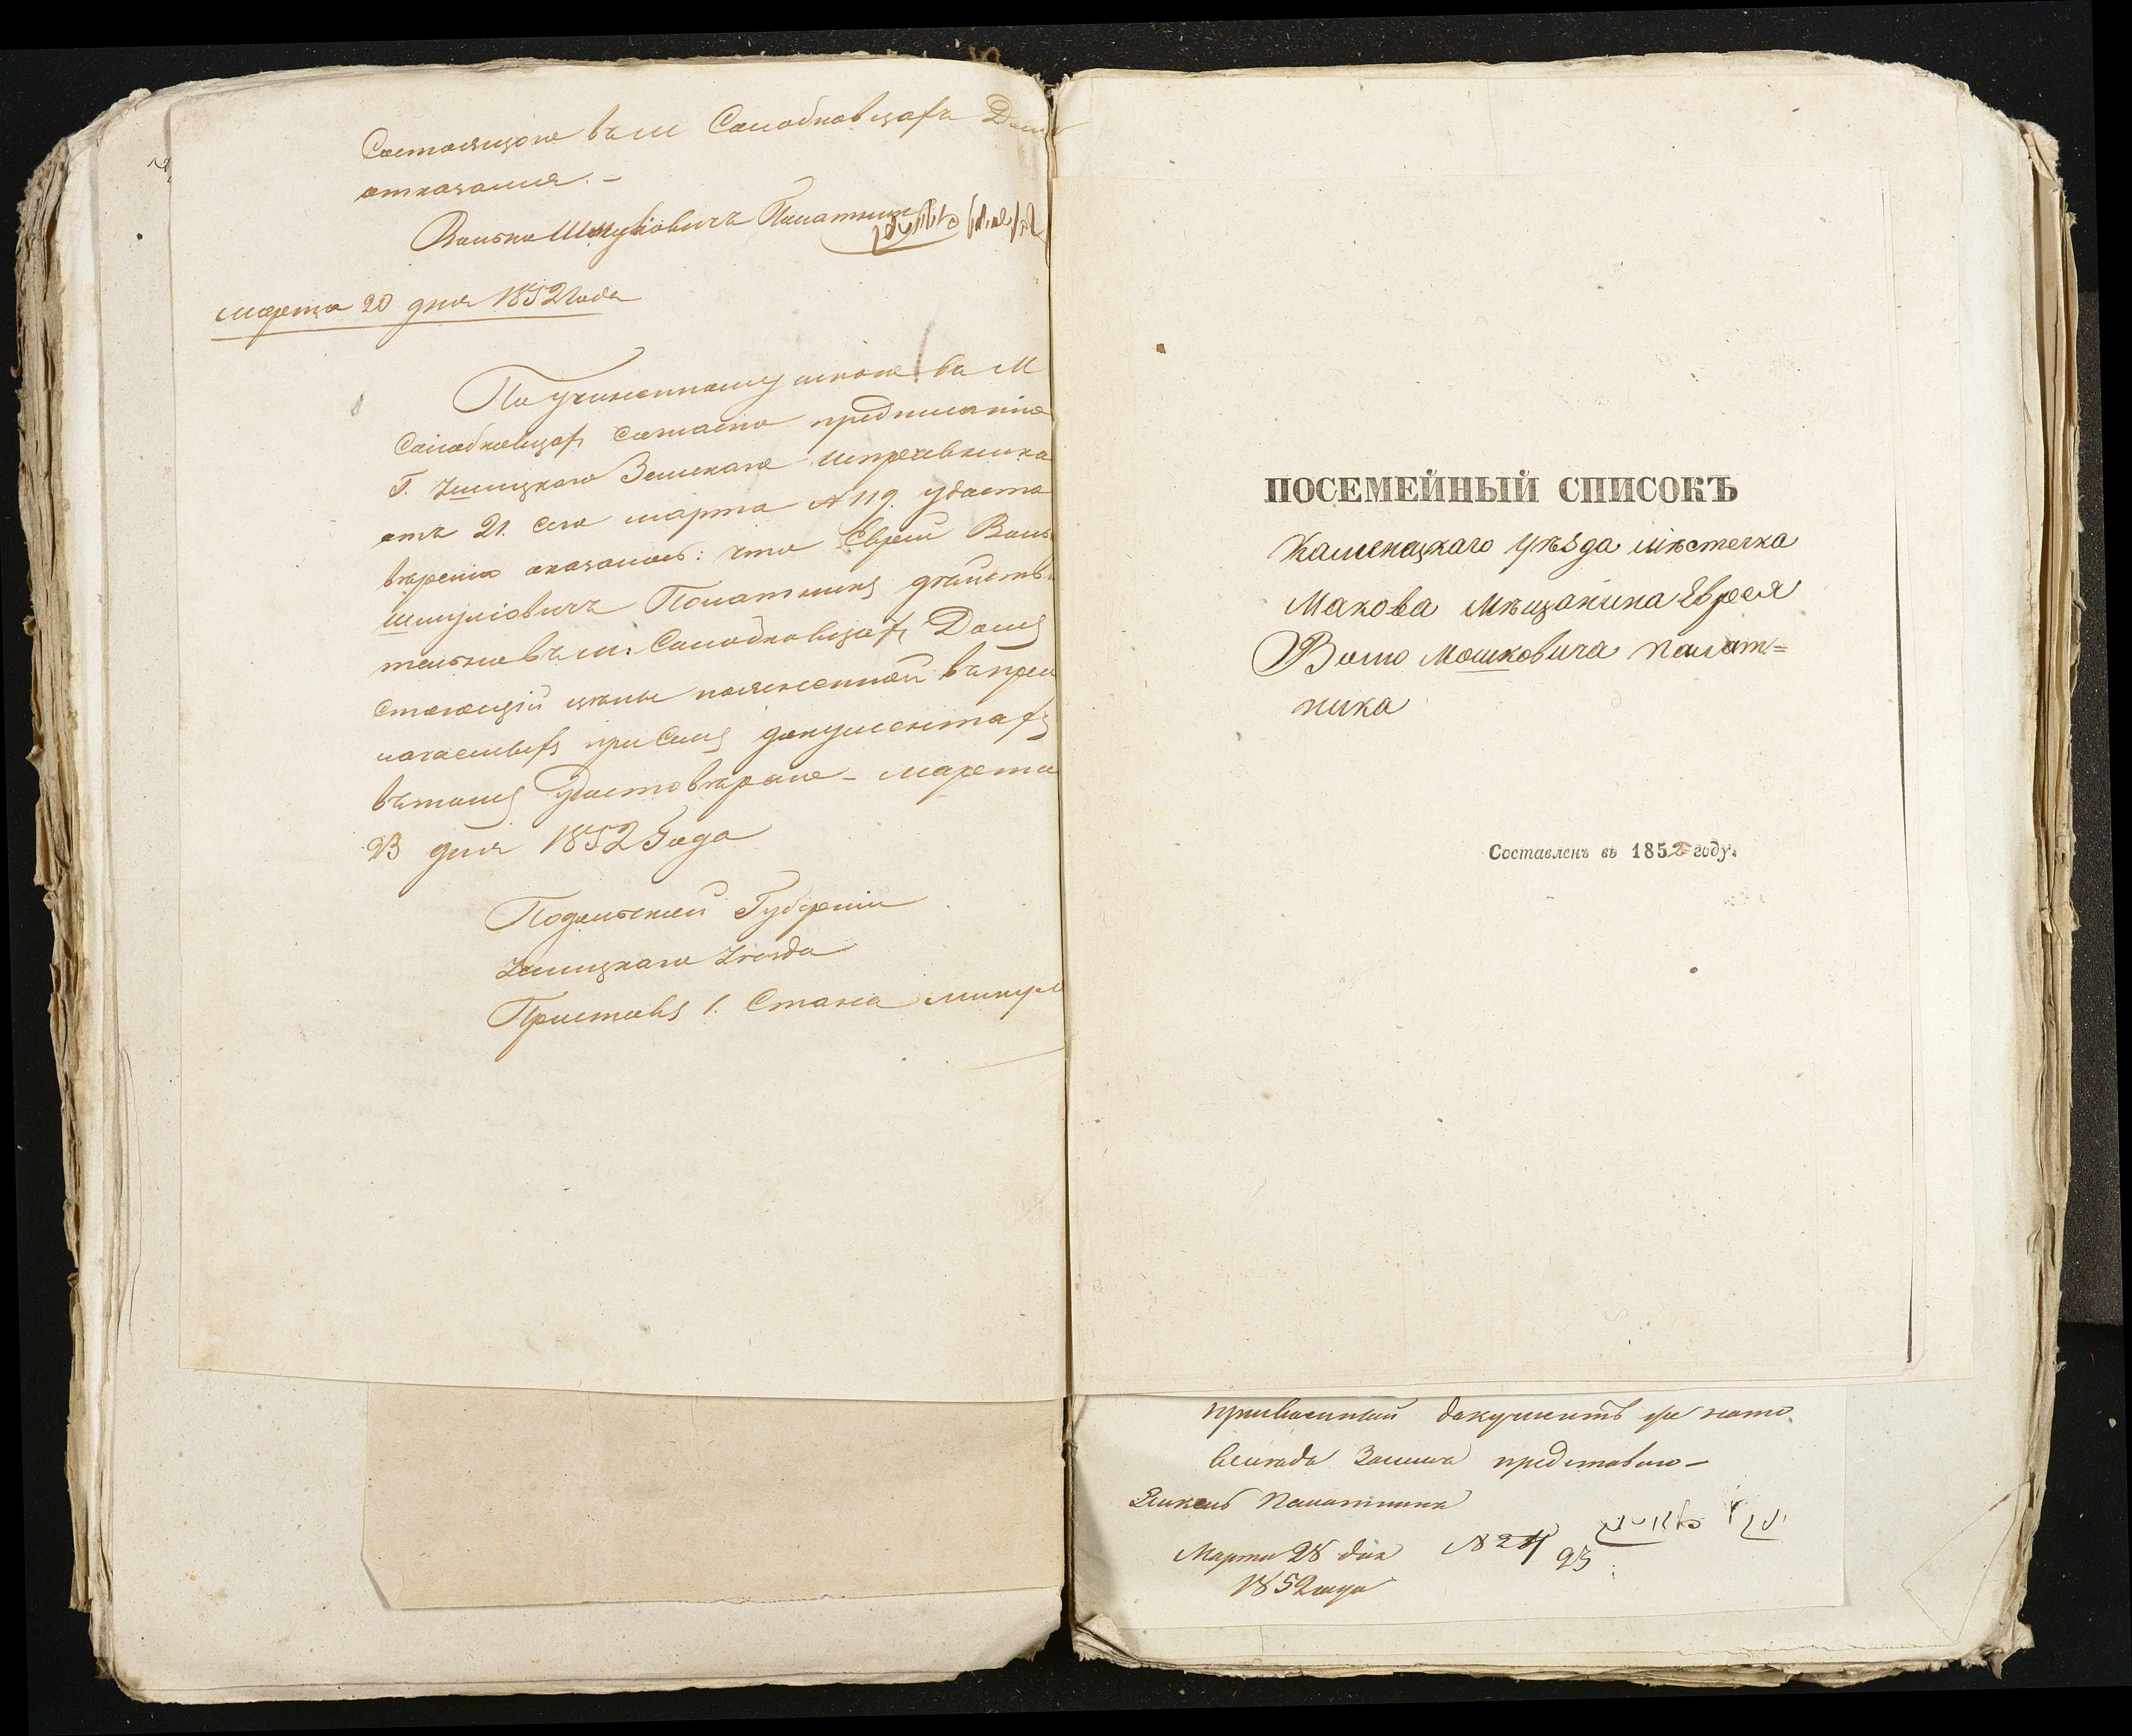 Состоящаго въ м Солобковцахъ Дома
отказался. –
Волько Шмулiовичъ Полатникъ
марта 20 дня 1852 года
По учиненному мною въ М
Солобковцахъ Согласно предписанiя
Г. Ушицкаго Земскаго Исправника
отъ 21. сего марта № 119. удосто
вѣренiю оказалось: что Еврей Воль
Шмулiовичъ Полатникъ дѣйств
тельно въ м. Солобковцахъ Домъ
стоющiй цѣны поясненной въ пред
ъ при Семъ документахъ
въ томъ Удостовѣряю – марта
23 дня 1852 Года
Подольской Губернiи
Ушицкаго Уѣзда
Приставъ 1. Стана
ПОСЕМЕЙНЫЙ СПИСОКЪ
Каменецкаго уѣзда мѣстечка
Макова Мѣщанина Еврея
Волю Мошковича Палат=
ника
Составленъ въ 1852 году.
документъ
представлю –
Янкель Палатникъ
Марта 28 дня № 24 23
1852 года